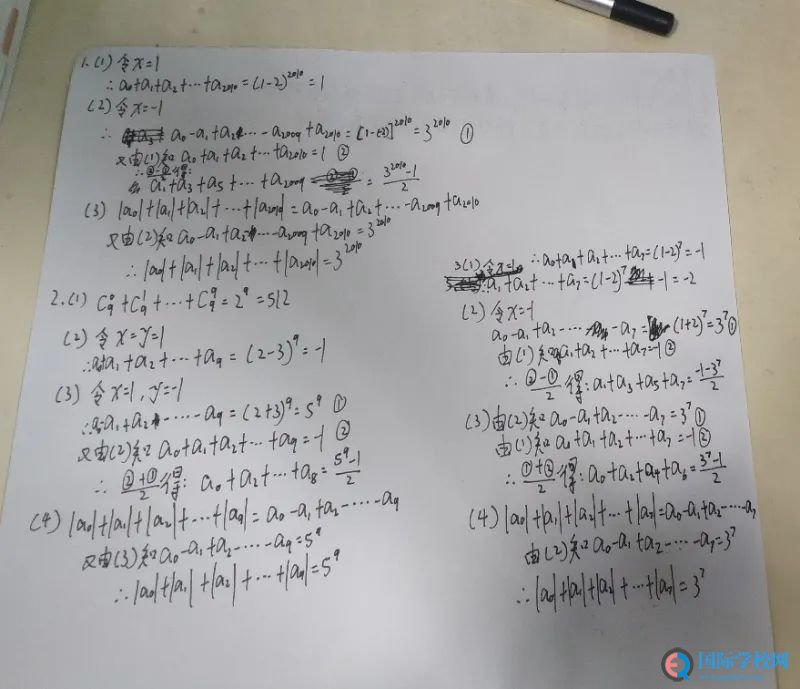 1.(1) 令x=1
∴a₀+a₁+a₂+⋯+a₂₀₁₀=(1-2)²⁰¹⁰=1
(2) 令x=-1
∴ a₀-a₁+a₂+⋯-a₂₀₀₉+a₂₀₁₀=[1-(-2)]²⁰¹⁰=3²⁰¹⁰ ①
又由(1)知 a₀+a₁+a₂+⋯+a₂₀₁₀=1 ②
∴ 得:
a₁+a₃+a₅+⋯+a₂₀₀₉ = (3²⁰¹⁰-1)/2
(3) |a₀|+|a₁|+|a₂|+⋯+|a₂₀₁₀|=a₀-a₁+a₂+⋯-a₂₀₀₉+a₂₀₁₀
又由(2)知a₀-a₁+a₂⋯-a₂₀₀₉+a₂₀₁₀=3²⁰¹⁰
∴|a₀|+|a₁|+|a₂|+⋯+|a₂₀₁₀|=3²⁰¹⁰
2.(1) C₉⁰+C₉¹+⋯+C₉⁹=2⁹=512
(2) 令x=y=1
∴a₀+a₁+a₂+⋯+a₉=(2-3)⁹=-1
(3) 令x=1,y=-1
∴a₀-a₁+a₂⋯-a₉=(2+3)⁹=5⁹ ①
又由(2)知 a₀+a₁+a₂+⋯+a₉=-1 ②
∴ (②+①)/2 得: a₀+a₂+⋯+a₈=(5⁹-1)/2
(4) |a₀|+|a₁|+|a₂|+⋯+|a₉|=a₀-a₁+a₂-⋯-a₉
又由(3)知a₀-a₁+a₂-⋯-a₉=5⁹
∴|a₀|+|a₁|+|a₂|+⋯+|a₉|=5⁹
3(1) 令x=1 ∴a₀+a₁+a₂+⋯+a₇=(1-2)⁷=-1
∴a₁+a₂+⋯+a₇=(1-2)⁷-1=-2
(2) 令x=-1
a₀-a₁+a₂-⋯-a₇=(1+2)⁷=3⁷①
由(1)知a₀+a₁+a₂+⋯+a₇=-1②
∴ (②-①)/2 得: a₁+a₃+a₅+a₇=(-1-3⁷)/2
(3) 由(2)知 a₀-a₁+a₂-⋯-a₇=3⁷①
由(1)知 a₀+a₁+a₂+⋯+a₇=-1②
∴ (①+②)/2 得: a₀+a₂+a₄+a₆=(3⁷-1)/2
(4) |a₀|+|a₁|+|a₂|+⋯+|a₇|=a₀-a₁+a₂-⋯-a₇
由(2)知 a₀-a₁+a₂-⋯-a₇=3⁷
∴|a₀|+|a₁|+|a₂|+⋯+|a₇|=3⁷
国际学校网